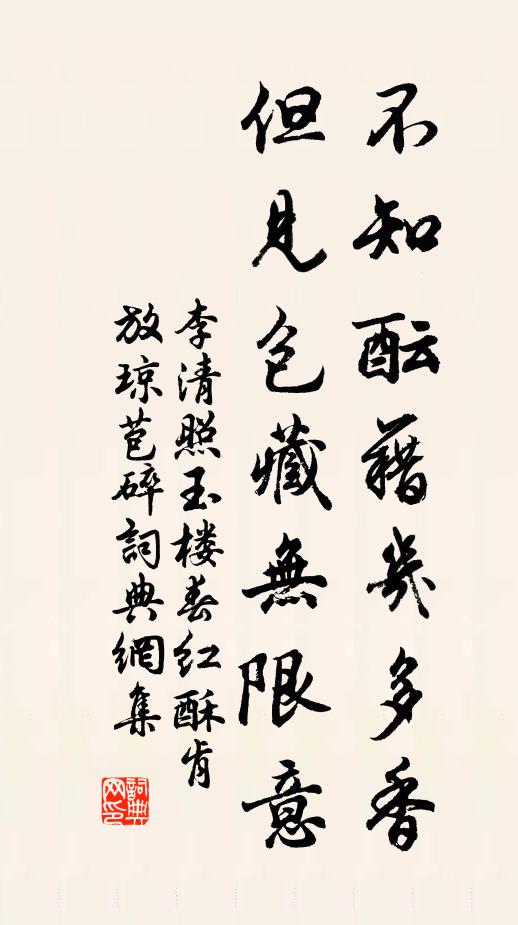 不知酝藉幾多香
但見包藏無限意
李清照玉楼春红酥肯
放琼苞碎詞典網集
詞典
网印